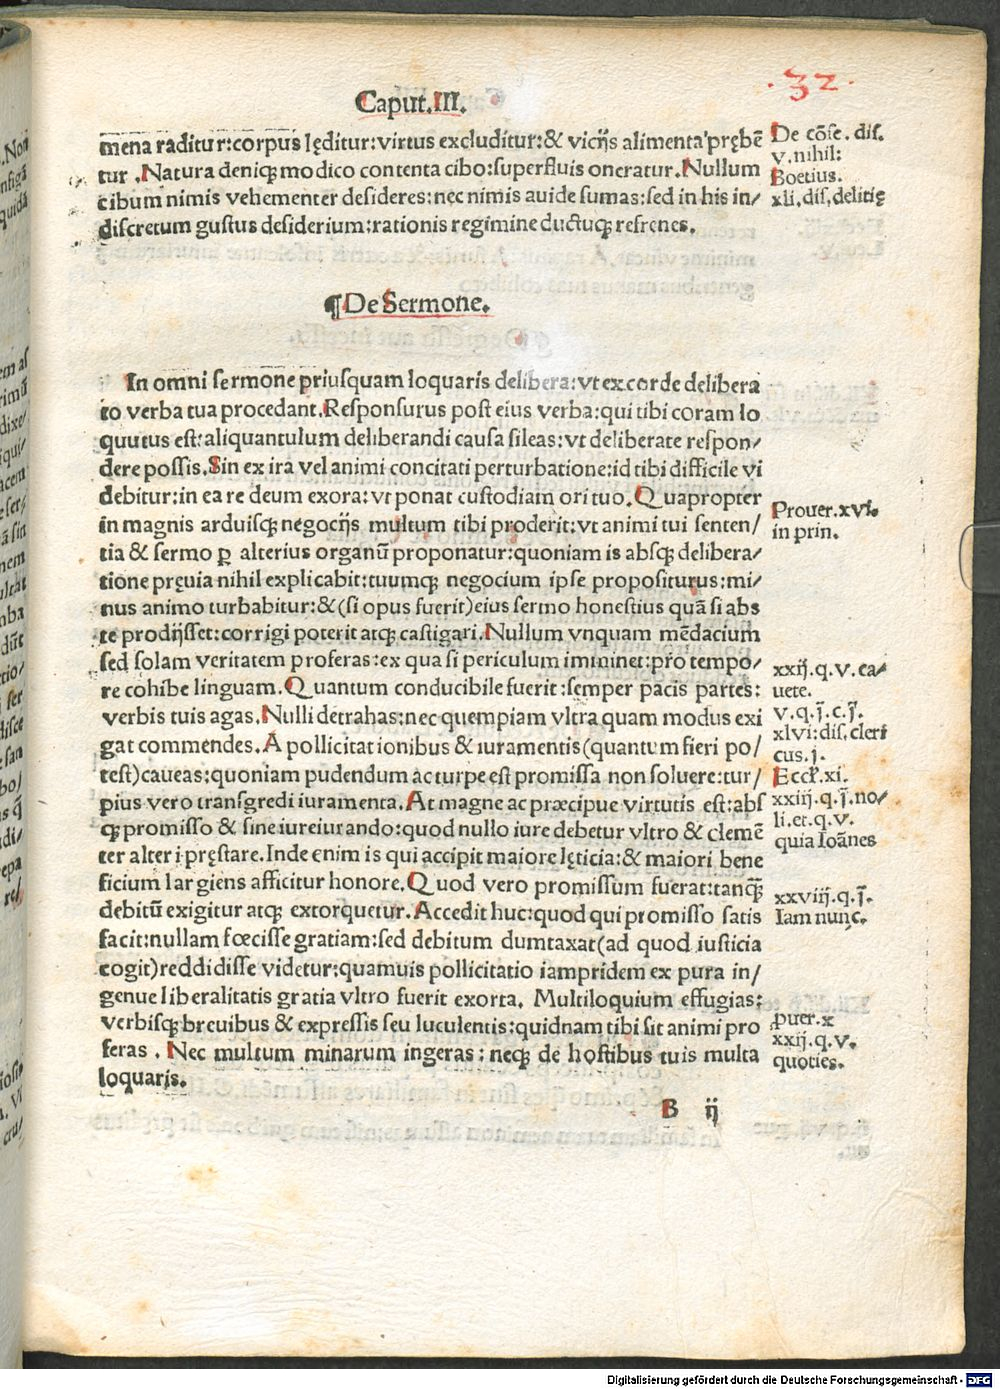 .32.
Caput.III.
mena raditur:corpus lęditur:virtus excluditur:& vicijs alimenta prębē
tur .Natura deniqꝫ modico contenta cibo:superfluis oneratur.Nullum
cibum nimis vehementer desideres:nec nimis auide sumas:sed in his in/
discretum gustus desiderium:rationis regimine ductuqꝫ refrenes.
De cōse. dis.
v. nihil:
Boetius.
xli.dis.delitię
¶De Sermone.
In omni sermone priusquam loquaris delibera:vt ex corde delibera
to verba tua procedant.Responsurus post eius verba:qui tibi coram lo
quutus est:aliquantulum deliberandi causa sileas:vt deliberate respon/
dere possis.Sin ex ira vel animi concitati perturbatione:id tibi difficile vi
debitur:in ea re deum exora:vt ponat custodiam ori tuo.Quapropter
in magnis arduisqꝫ negocijs multum tibi proderit:vt animi tui senten/
tia & sermo ꝑ alterius organū proponatur:quoniam is absqꝫ delibera/
tione pręuia nihil explicabit:tuumqꝫ negocium ipse propositurus:mi/
nus animo turbabitur:&(si opus fuerit)eius sermo honestius quā si abs
te prodijsset:corrigi poterit atqꝫ castigari.Nullum vnquam mēdacium
sed solam veritatem proferas:ex qua si periculum imminet:pro tempo/
re cohibe linguam.Quantum conducibile fuerit:semper pacis partes:
verbis tuis agas.Nulli detrahas:nec quempiam vltra quam modus exi
gat commendes.A pollicitationibus & iuramentis(quantum fieri po/
test)caueas:quoniam pudendum ac turpe est promissa non soluere:tur/
pius vero transgredi iuramenta.At magne ac præcipue virtutis est:abs
qꝫ promisso & sine iureiurando:quod nullo iure debetur vltro & clemē
ter alteri pręstare.Inde enim is qui accipit maiore lęticia:& maiori bene
ficium largiens afficitur honore.Quod vero promissum fuerat:tanqꝫ̄
debitū exigitur atqꝫ extorquetur.Accedit huc:quod qui promisso satis
facit:nullam fœcisse gratiam:sed debitum dumtaxat(ad quod iusticia
cogit)reddidisse videtur:quamuis pollicitatio iampridem ex pura in/
genue liberalitatis gratia vltro fuerit exorta. Multiloquium effugias:
verbisqꝫ breuibus & expressis seu luculentis:quidnam tibi sit animi pro
feras . Nec multum minarum ingeras : neqꝫ de hostibus tuis multa
loquaris.
Prouer.xvi.
in prin.
xxij.q.v.ca/
uete.
v.q.j̄.c.j̄.
xlvi:dis.cleri
cus.j.
Eccł.xi.
xxiij.q.j̄.no/
li.et.q.v.
quia Ioānes
xxviij.q.j̄.
Iam nunc.
ꝓuer.x
xxij.q.v.
quoties.
B ij
Digitalisierung gefördert durch die Deutsche Forschungsgemeinschaft - DFG